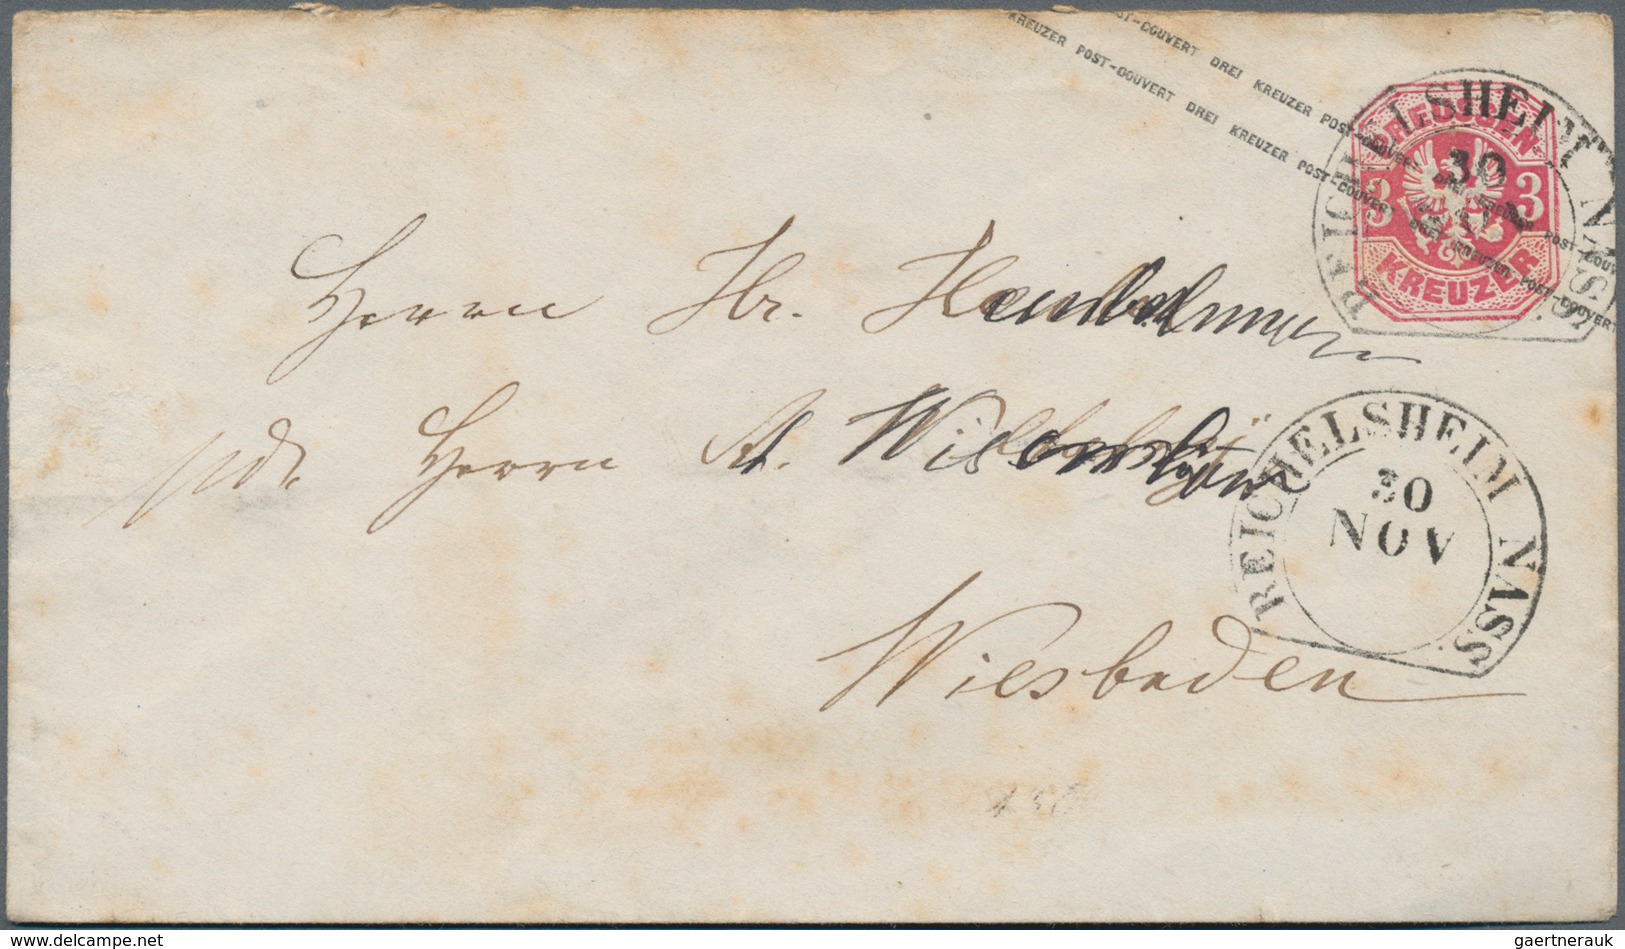 KREUZER POST-COUVERT DREI KREUZER POST-COUVERT DREI KREUZER POST-COUVERT
POST-COUVERT DREI KREUZER POST-COUVERT DREI KREUZER POST-COUVERT
PREUSSEN
3 3
KREUZER
REICHELSHEIM NASS
30
NOV
Herrn Hr.
Herrn A.
Wiesbaden
REICHELSHEIM NASS.
30
NOV
delcampe.net
gaertnerauk